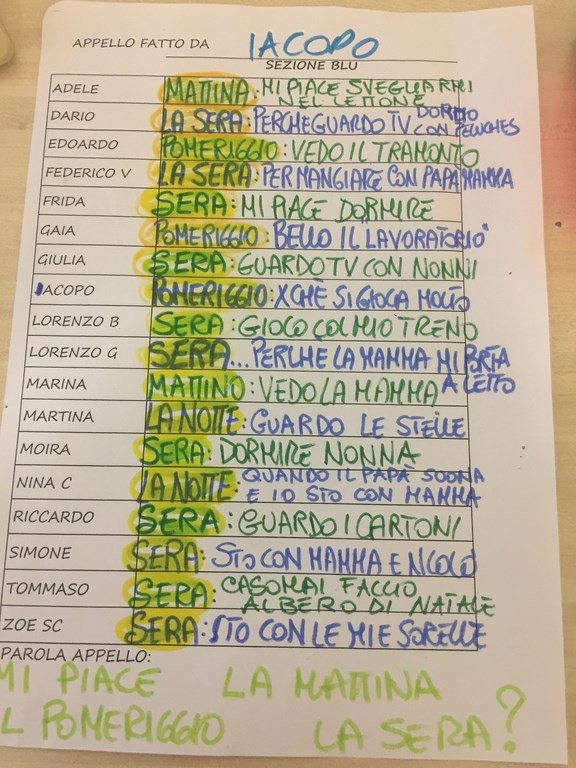 APPELLO FATTO DA IACOPO
SEZIONE BLU
ADELE MATTINA: MI PIACE SVEGLIARMI
NEL LETTONE
DARIO LA SERA: PERCHE GUARDO TV DORMO
CON PELUCHES
EDOARDO POMERIGGIO: VEDO IL TRAMONTO
FEDERICO V LA SERA: PER MANGIARE CON PAPÀ MAMMA
FRIDA SERA: MI PIACE DORMIRE
GAIA POMERIGGIO: BELLO IL "LAVORATORIO"
GIULIA SERA: GUARDO TV CON NONNI
IACOPO POMERIGGIO: XCHÈ SI GIOCA MOLTO
LORENZO B SERA: GIOCO COL MIO TRENO
LORENZO G SERA... PERCHE LA MAMMA MI PORTA
A LETTO
MARINA MATTINO: VEDO LA MAMMA
MARTINA LA NOTTE: GUARDO LE STELLE
MOIRA SERA: DORMIRE NONNA
NINA C LA NOTTE: QUANDO IL PAPÀ SUONA
E IO STO CON MAMMA
RICCARDO SERA: GUARDO I CARTONI
SIMONE SERA: STO CON MAMMA E NICOLÒ
TOMMASO SERA: CASOMAI FACCIO
ALBERO DI NATALE
ZOE SC SERA: STO CON LE MIE SORELLE
PAROLA APPELLO:
MI PIACE LA MATTINA
IL POMERIGGIO LA SERA?